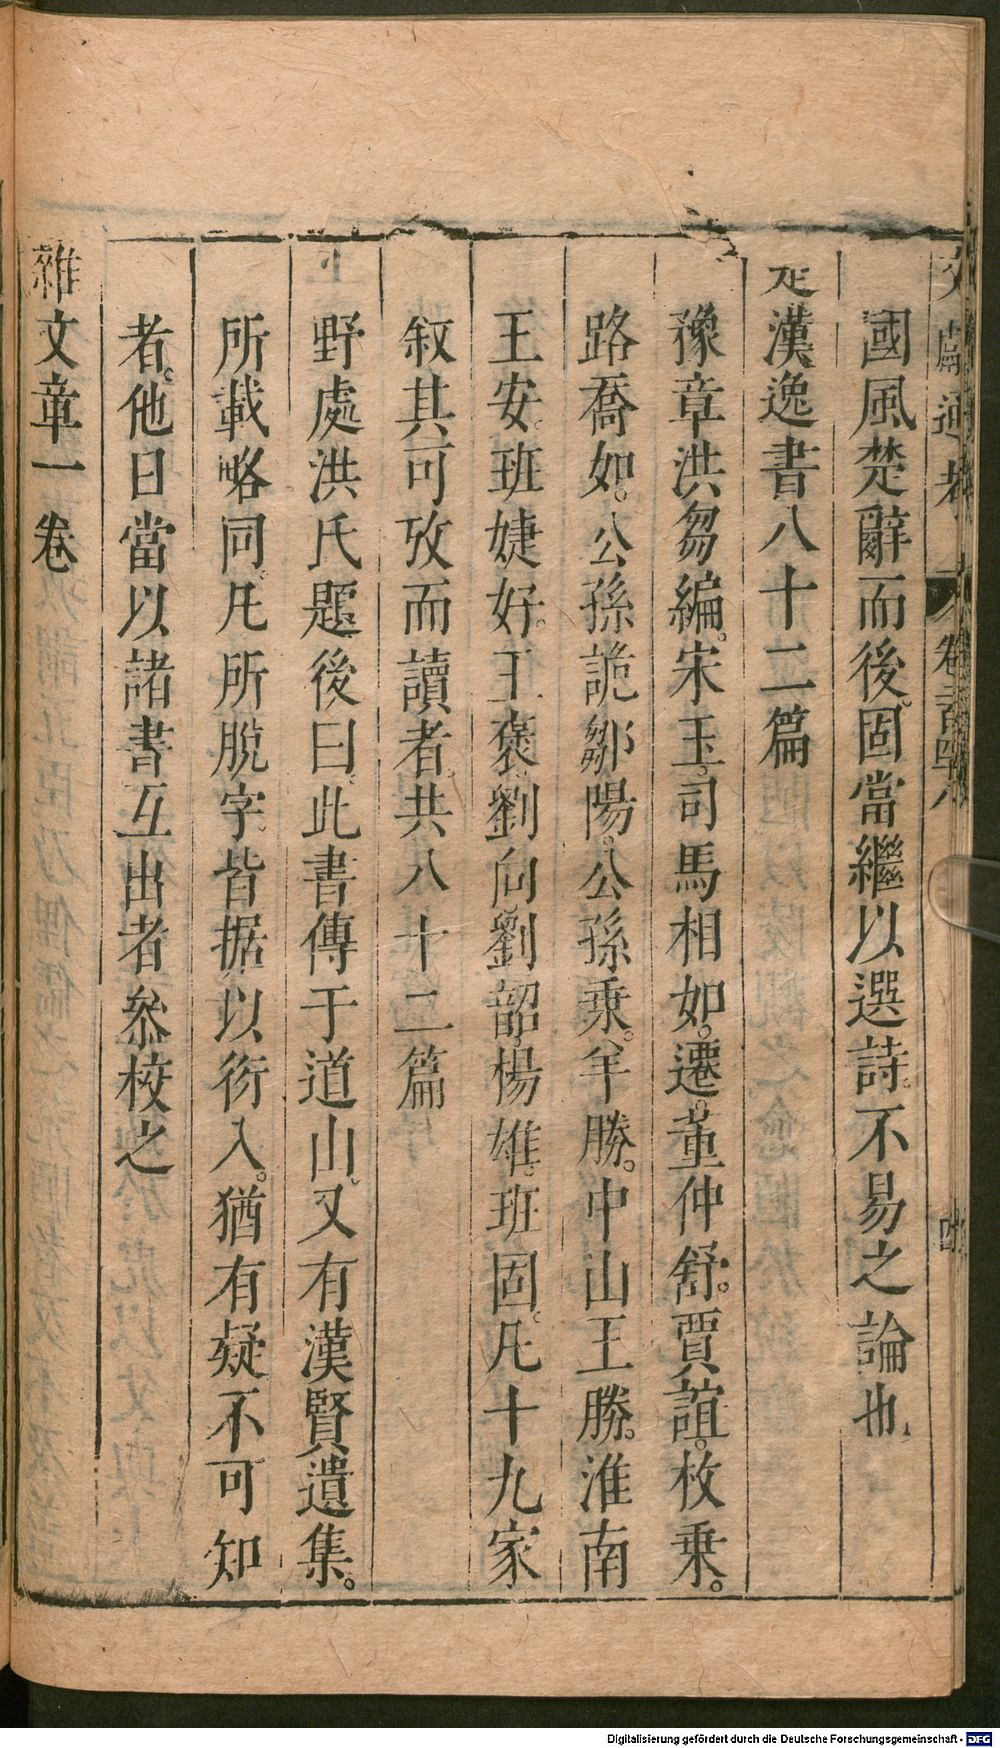 國風楚辭而後。固當繼以選詩。不易之論也
疋漢逸書八十二篇
豫章洪芻編。宋玉。司馬相如。遷。董仲舒。賈誼。枚乗。
路喬如。公孫詭。鄒陽。公孫乗。羊勝。中山王勝。淮南
王安。班婕妤。王褒。劉向。劉韶。楊雄。班固。凡十九家
叙其可攷而讀者。共八十二篇
野處洪氏題後曰。此書傳于道山。又有漢賢遺集。
所載略同。凡所脫字。皆据以衍入。猶有疑不可知
者。他日當以諸書互出者叅校之
雜文章一卷
Digitalisierung gefördert durch die Deutsche Forschungsgemeinschaft - DFG